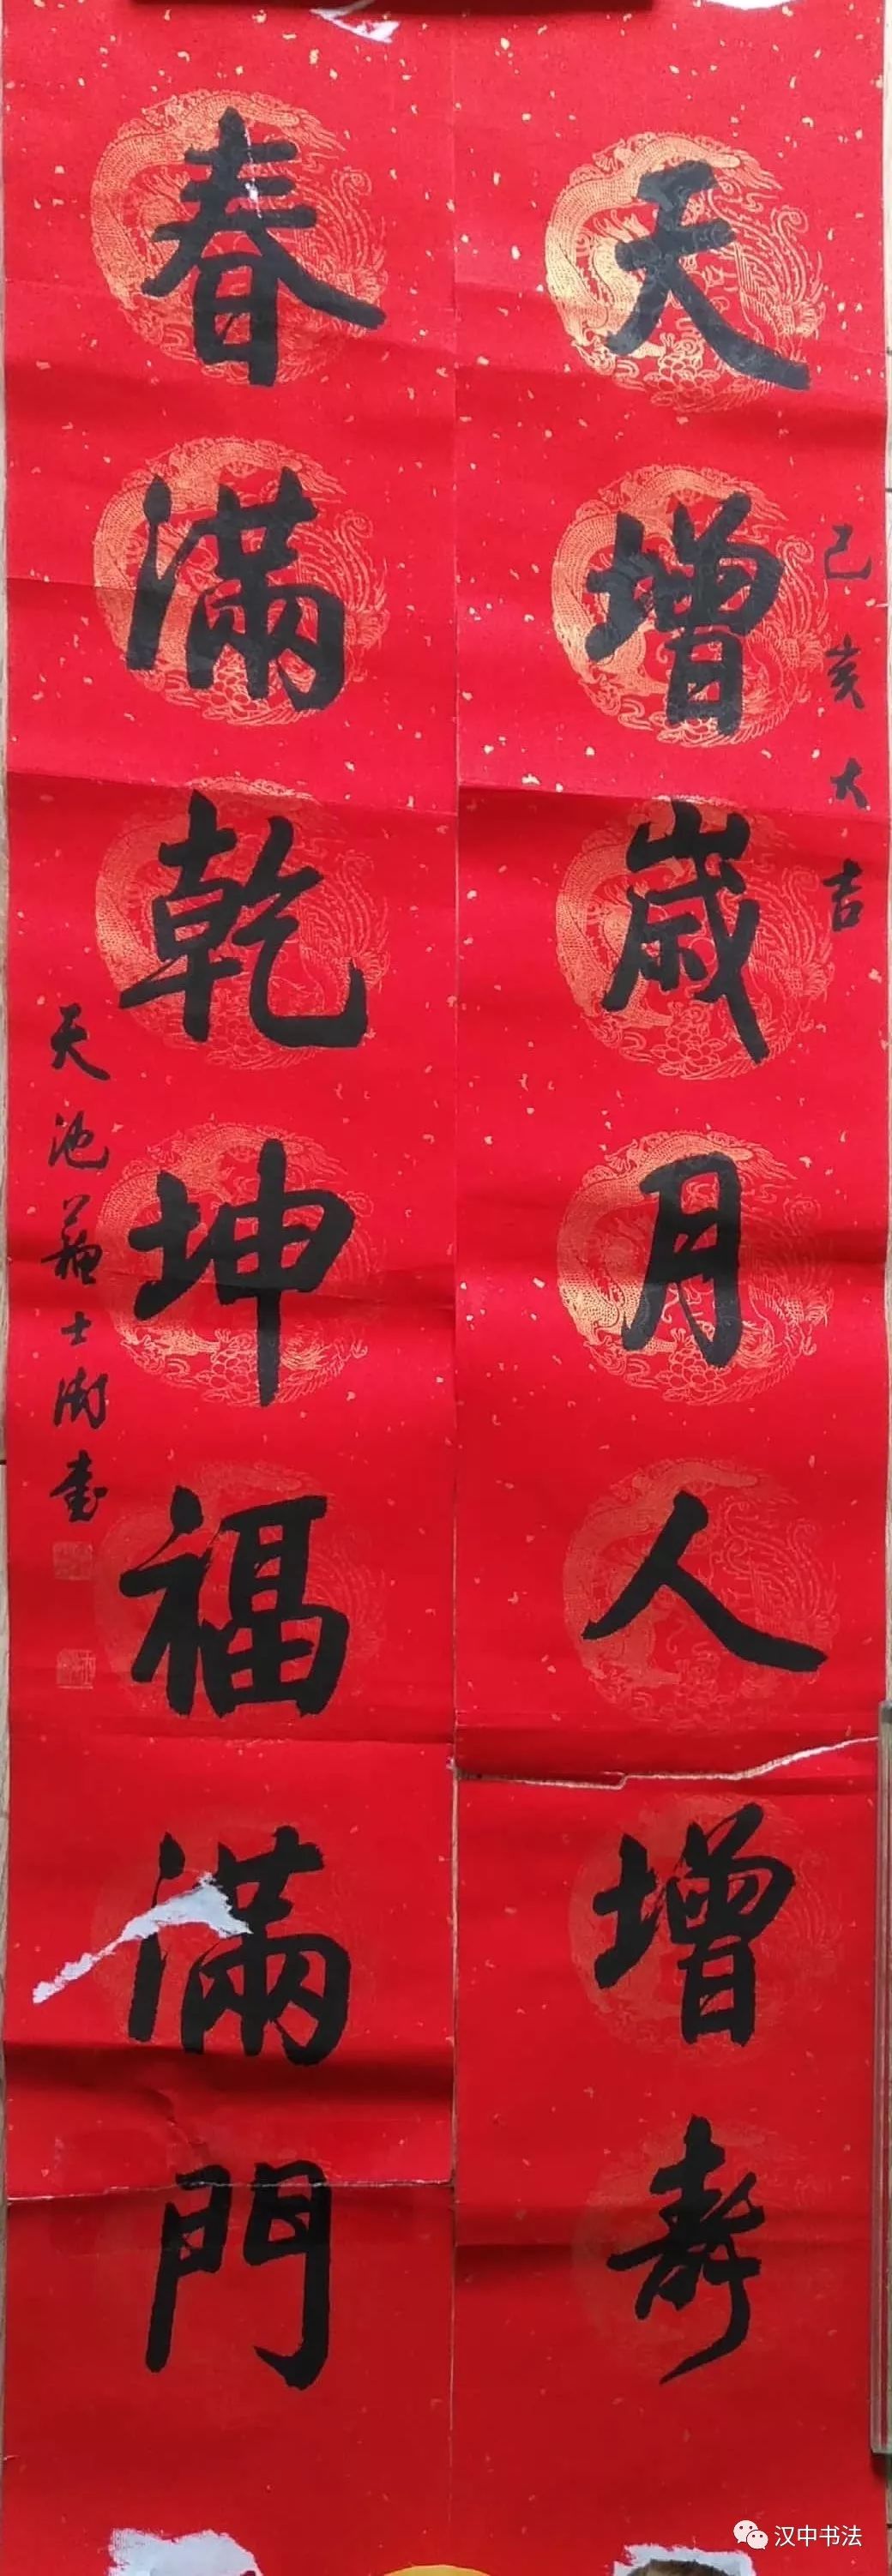 天增歲月人增壽
己亥大吉
春滿乾坤福滿門
天池蘇士澍書
汉中书法